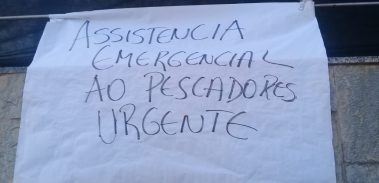 ASSISTENCIA
EMERGENCIAL
AO PESCADORES
URGENTE